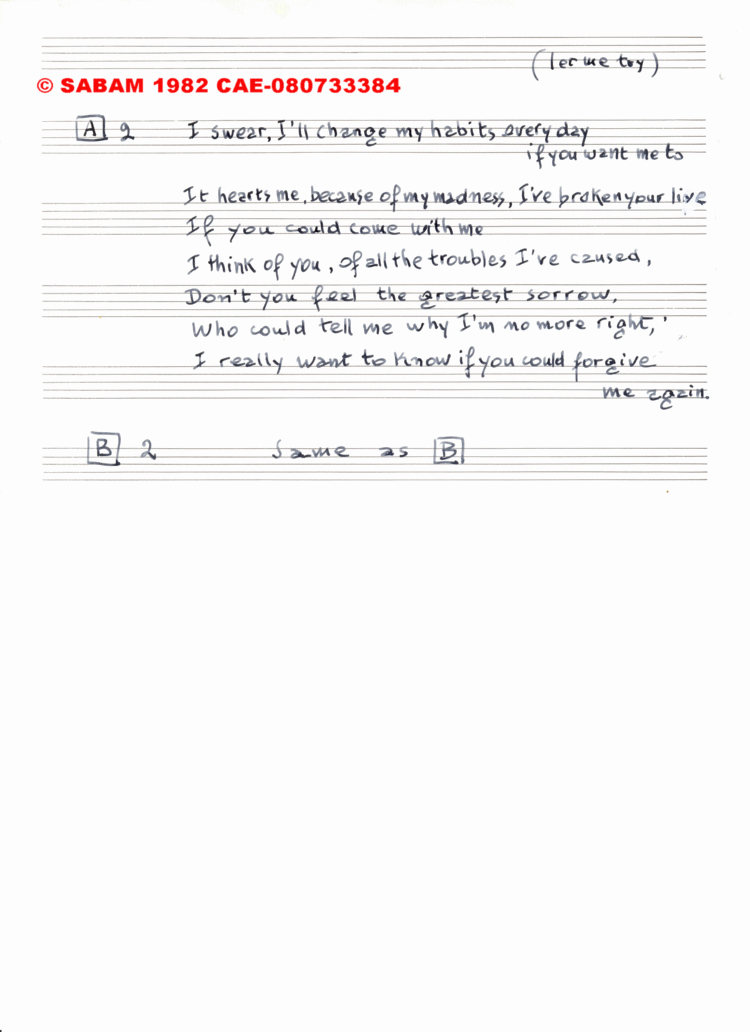 (let me try)
© SABAM 1982 CAE-080733384
A 2 I swear, I'll change my habits, every day
if you want me to
It hearts me, because of my madness, I've broken your live
If you could come with me
I think of you, of all the troubles I've caused,
Don't you feel the greatest sorrow,
Who could tell me why I'm no more right,
I really want to know if you could forgive
me again.
B 2 Same as B